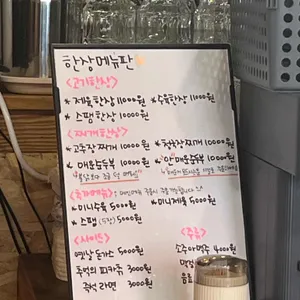 한상메뉴판
<고기한상>
* 제육한상 11000원 * 수육한상 11000원
* 스팸한상 10000원
<찌개한상>
* 고추장찌개 10000원 * 청국장찌개 10000원
* 매운순두부 10000원 * 안매운순두부 10000원
<추가메뉴>
* 미니수육 5000원 * 미니제육 5000원
* 스팸 5000원
<사이드> <주류>
옛날 돈까스 5000원 소주 4000원
추억의 피카츄 3000원
즉석 라면 3000원 음료